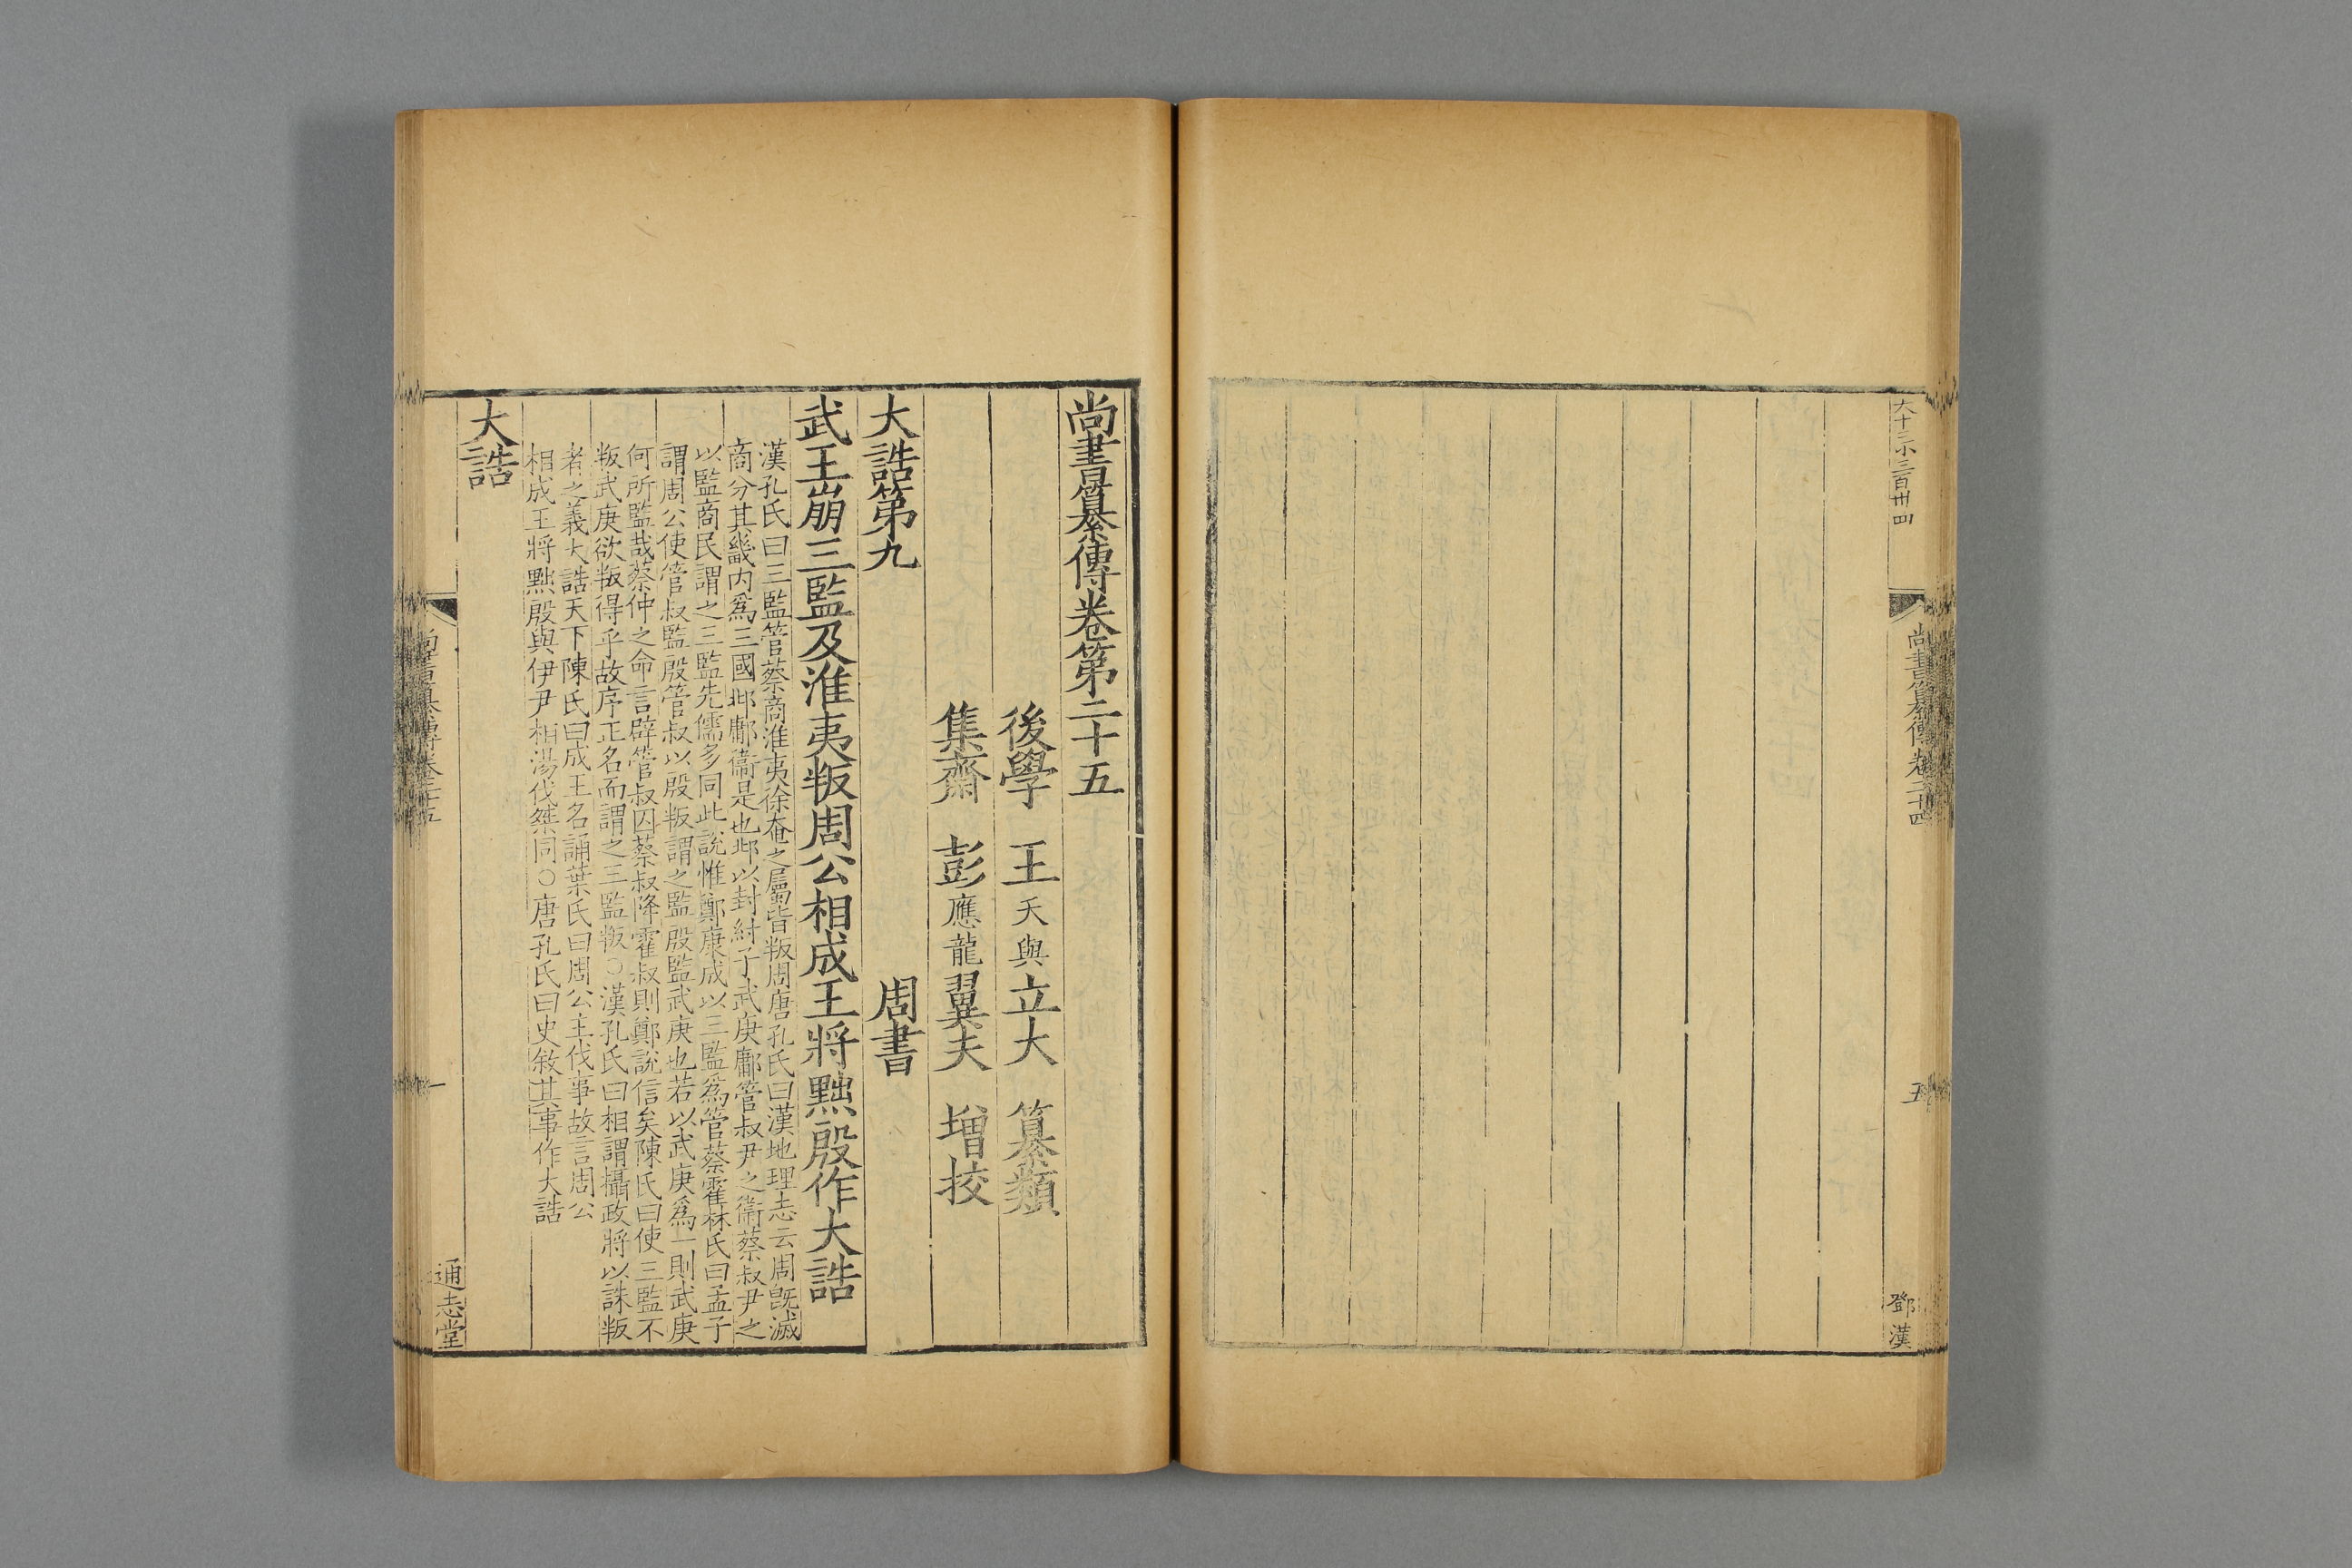 大十二小三百卅四
尚書纂傳卷二十四
五
鄧漢
尚書纂傳卷第二十五
後學 王天與立大 纂類
集齋 彭應龍翼夫 增挍
大誥第九 周書
武王崩三監及淮夷叛周公相成王將黜殷作大誥
漢孔氏曰三監管蔡商淮夷徐奄之屬皆叛周唐孔氏曰漢地理志云周旣滅
商分其畿內爲三國邶鄘衞是也邶以封紂子武庚鄘管叔尹之衞蔡叔尹之
以監商民謂之三監先儒多同此說惟鄭康成以三監爲管蔡霍林氏曰孟子
謂周公使管叔監殷管叔以殷叛謂之監殷監武庚也若以武庚爲一則武庚
何所監哉蔡仲之命言辟管叔囚蔡叔降霍叔則鄭說信矣陳氏曰使三監不
叛武庚欲叛得乎故序正名而謂之三監叛○漢孔氏曰相謂攝政將以誅叛
者之義大誥天下陳氏曰成王名誦葉氏曰周公主伐事故言周公
相成王將黜殷與伊尹相湯伐桀同○唐孔氏曰史敘其事作大誥
大誥
尚書纂傳卷二十五
一
通志堂